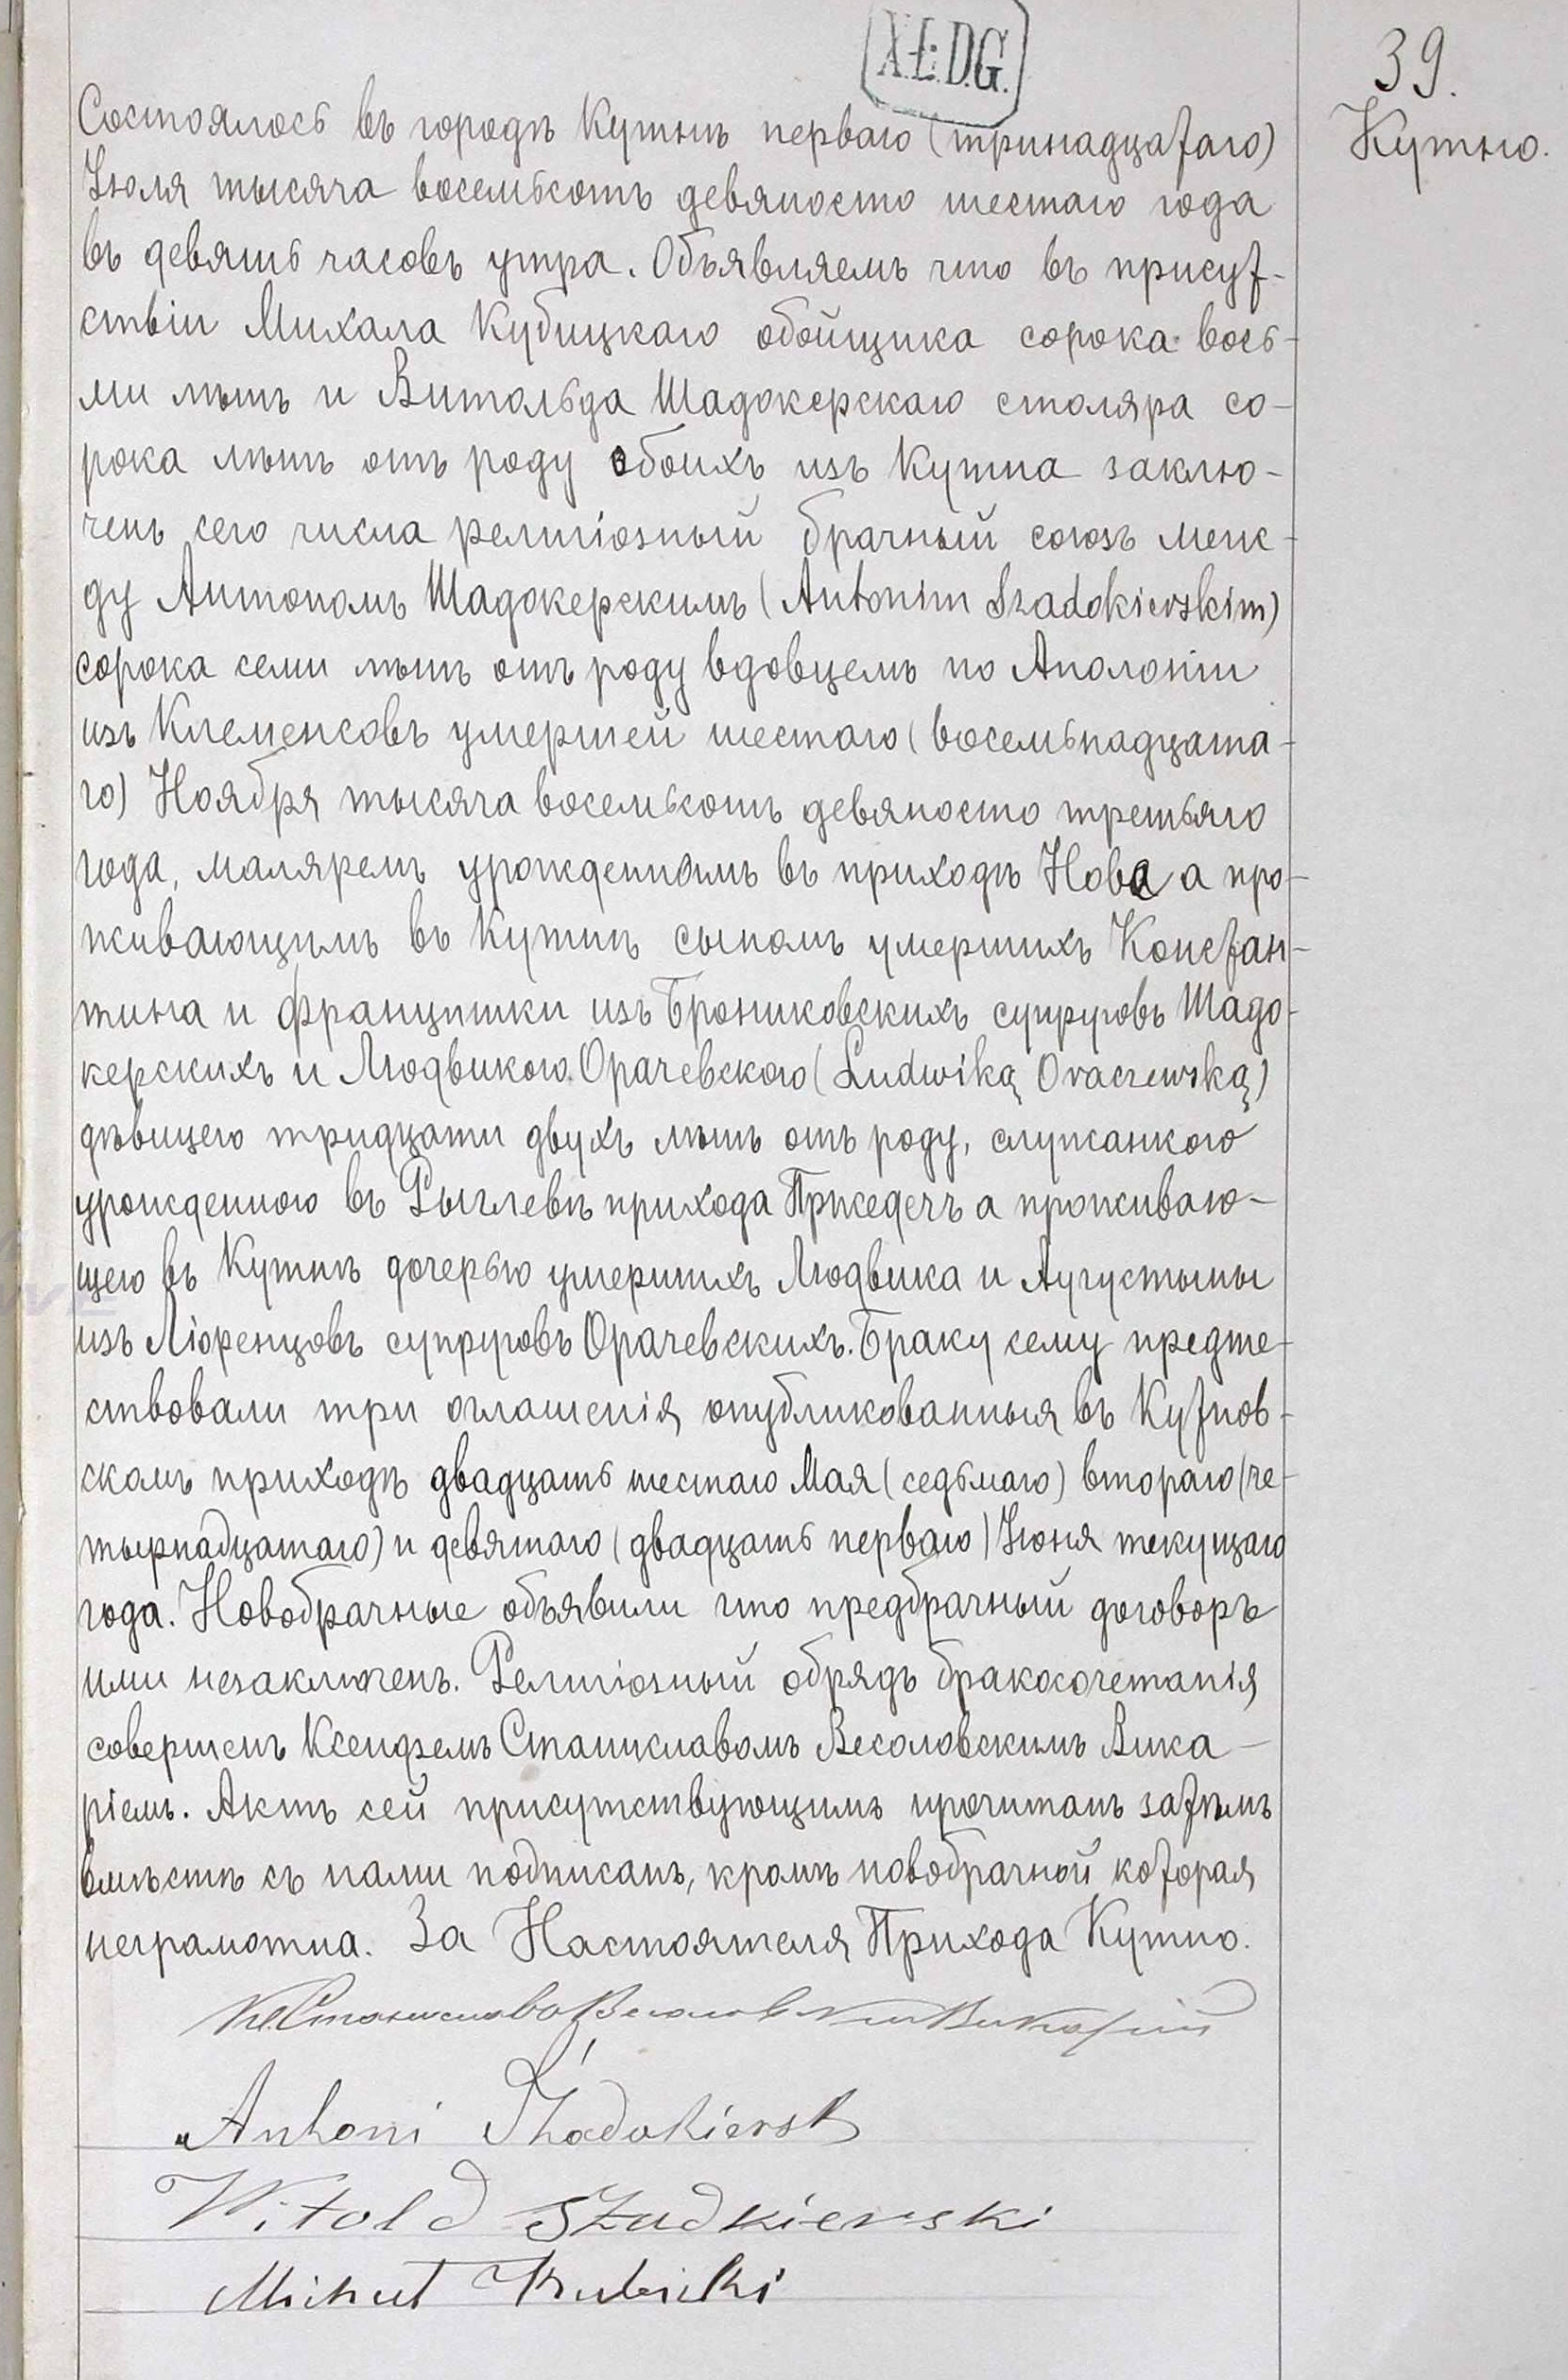 X.Ł.D.G.
39.
Кутно.
Состоялось въ городѣ Кутнѣ перваго (тринадцатаго)
Іюля тысяча восемьсотъ девяносто шестаго года
въ девять часовъ утра. Объявляемъ что въ присут-
ствіи Михала Кубицкаго обойщика сорока вось-
ми лѣтъ и Витольда Шадокерскаго столяра со-
рока лѣтъ отъ роду обоихъ изъ Кутна заклю-
ченъ сего числа религіозный брачный союзъ меж-
ду Антономъ Шадокерскимъ (Antonim Szadokierskim)
сорока семи лѣтъ отъ роду вдовцемъ по Аполоніи
изъ Клеменсовъ умершей шестаго (восемьнадцата-
го) Ноября тысяча восемьсотъ девяносто третьяго
года, маляремъ урожденнымъ въ приходѣ Нова а про-
живающимъ въ Кутнѣ сыномъ умершихъ Констан-
тина и Францишки изъ Брониковскихъ супруговъ Шадо-
керскихъ и Людвикою Орачевскою (Ludwiką Oraczewską)
дѣвицею тридцати двухъ лѣтъ отъ роду, служанкою
урожденною въ Рыглевѣ прихода Пржедечъ а проживаю-
щею въ Кутнѣ дочерью умершихъ Людвика и Аугустыны
изъ Ліоренцовъ супруговъ Орачевскихъ. Браку сему предше-
ствовали три оглашенія опубликованныя въ Кутнов-
скомъ приходѣ двадцать шестаго Мая (седьмаго) втораго (че-
тырнадцатаго) и девятаго (двадцать перваго) Іюня текущаго
года. Новобрачные объявили что предбрачный договоръ
ими незаключенъ. Религіозный обрядъ бракосочетанія
совершенъ Ксендземъ Станиславомъ Весоловскимъ Вика-
ріемъ. Актъ сей присутствующимъ прочитанъ затѣмъ
вмѣстѣ съ нами подписанъ, кромѣ новобрачной которая
неграмотна. За Настоятеля Прихода Кутно.
Кс. Станиславъ Весоловскій Викарій
Antoni Szadokiersk
Witold Szadkierski
Michał Kubicki